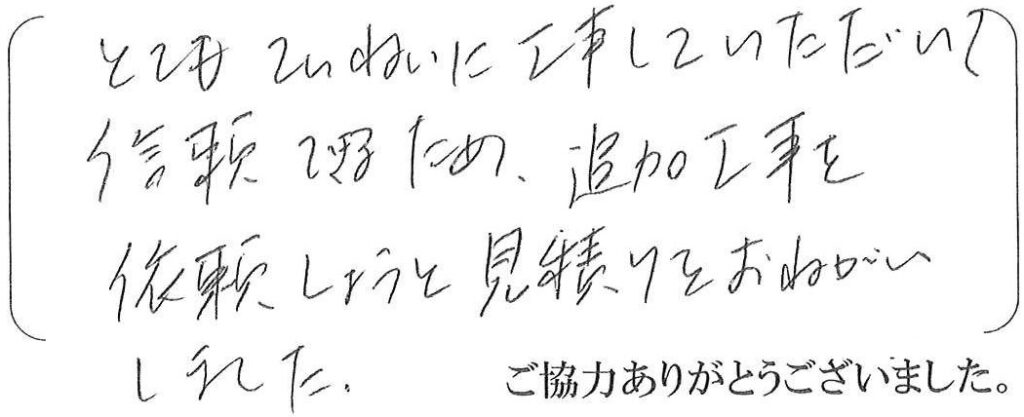 とてもていねいに工事していただいて
信頼できるため、追加工事を
依頼しようと見積りをおねがい
しました.
ご協力ありがとうございました。